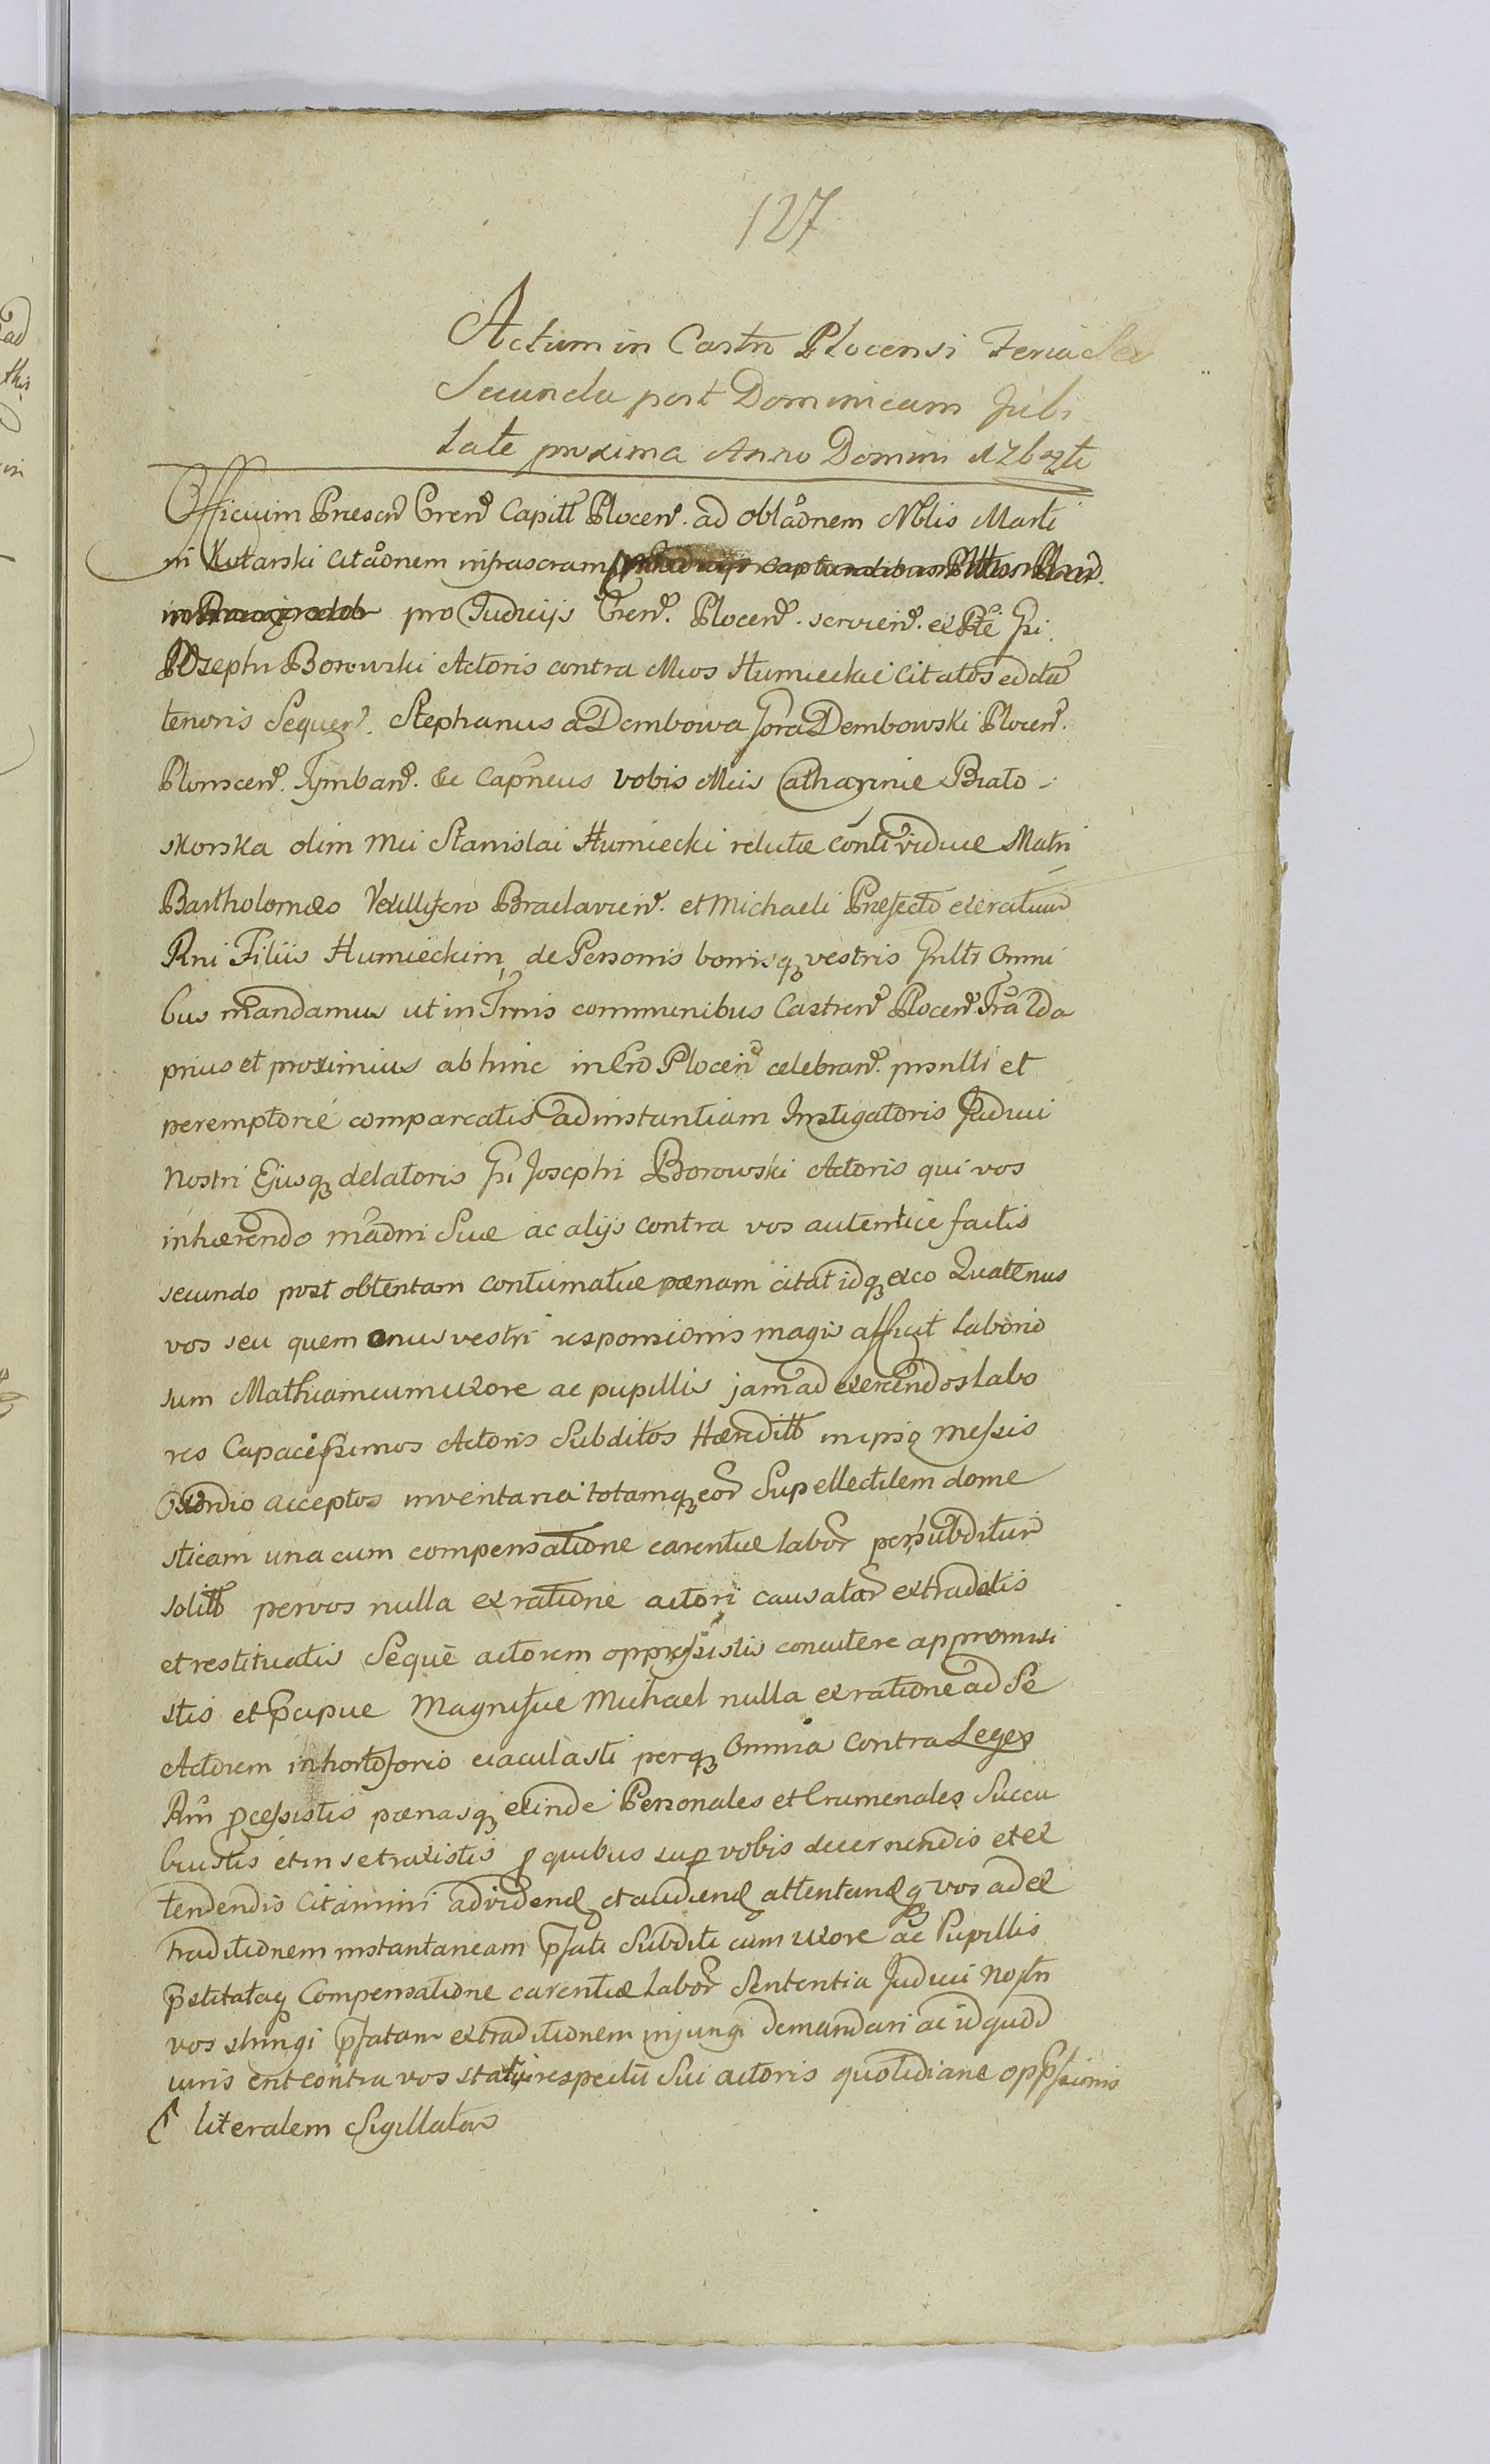 127
Actum in Castro Plocensi Feria
Secunda post Dominicam Jubi
late proxima Anno Domini
Officium Præsen Cren Capitl Plocen. ad oblaõnem Nblis Marti
ni Kutarski citaõnem infrascram
pro Judicijs Cren. Plocen. servien. ex Pte Gi
Josephi Borowski Actoris contra Mcos Humieckie Citatos
tenoris Sequen. Stephanus a Dembowa Gora Dembowski Plocen.
Plonscen. Tymban. &c Capneus vobis Mcis Catharinæ Brato
skorska olim Mci Stanislai Humiecki relictæ Conti viduæ Matri
Bartholomæo Vexillifero Braclavien. et Michaeli Præfecto exeratuum
Rni Filiis Humieckim, de Personis bonisq vestris Gnltr Omni
bus mandamus ut in Trmis communibus Castren Plocen. Fra 2da
prius et proximius ab hinc in Cro Plocen celebran. psnltr et
peremptorie compareatis ad instantiam Instigatoris Judicii
Nostri Ejusq delatoris Gi Josephi Borowski Actoris qui vos
inhærendo mãdni Suæ ac alijs contra vos autentice factis
secundo post obtentam contumatiæ pænam citat idq ex eo Quatenus
vos seu quem onus vestri responsionis magis afficit Laborio
sum Mathiam cum uxore ac pupillis jam ad exercendos labo
res Capacissimos Actoris Subditos Hæreditt in ipso messis
exordio acceptos inventaria totamq eor Supellectilem dome
sticam una cum compensatione carentiæ labor per subditur
solitt per vos nulla ex ratione actori causator extradatis
et restituatis Seque actorem oppressistis concutere appromisi
stis et Pcipue Magnifice Michael nulla ex ratione ad Se
Actorem in horto forio eiaculasti perq Omnia contra Leges
Rni pcessistis pænasq exinde Personales et Crumenales Succu
buistis et in se traxistis p quibus sup vobis decernendis et ex
tendendis Citamini ad vidend et audiend attentand q vos ad ex
traditionem instantaneam pfati Subditi cum uxore ac Pupillis
pstitataq Compensatione carentiæ Labor Sententia Judicii Nostri
vos stringi pfatam extraditionem injungi demandari ac id quod
iuris erit contra vos statui respectu Sui actoris quotidiane oppssionis
literalem Sigillator